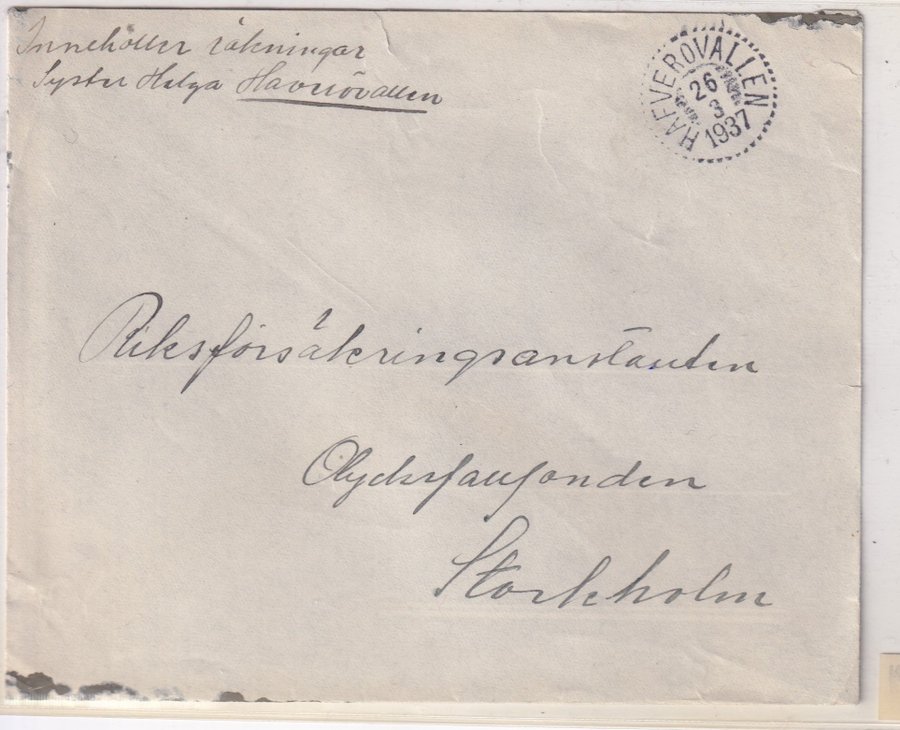 Innehåller räkningar
Syster Helga Haverövallen
HAFVEROVALLEN
26
3
1937
Riksförsäkringsanstalten
Olycksfallsfonden
Stockholm